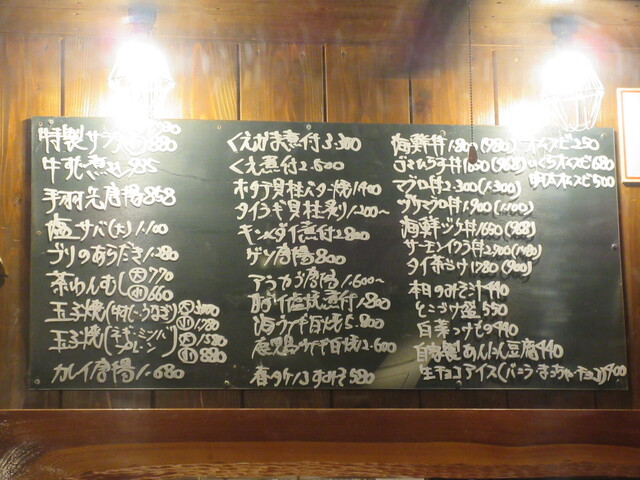 特製サラダ 880
牛すじ煮込
手羽先唐揚 858
塩サバ(大) 1.100
ブリのあらだき 1.280
茶わんむし (大) 770
(小) 660
玉子焼
(小) 1.780
玉子焼 (ネギ・ミンチ・プレーン) (大) 1.580
(小) 880
カレイ唐揚 1.680
くえかま煮付 3.300
くえ煮付 2.800
ホタテ貝柱バター焼 1.400
タイラギ貝柱炙り 1.200~
キンメダイ煮付 2.800
ゲソ唐揚 800
アラカブ唐揚 1.600~
煮付 1.800
白焼 5.800
鹿児島ウナギ白焼 2.600
春タケノコすみそ 580
海鮮丼 1.800 (980)
ゴマひらす丼 1.650 (988)
マグロ丼 2.300 (1.300)
ブリマグロ丼 1.900 (1.100)
海鮮ヅケ丼 1.690 (988)
サーモンイクラ丼 2.900 (1.480)
タイ茶づけ 1.780 (900)
本日のみそ汁 440
とこづけ盛 550
白菜つけもの 440
自家製あんにん豆腐 440
生チョコアイス(バニラ・まっちゃ・チョコ) 400
オムスビ 250
めぐろオムスビ 680
明太オムスビ 500